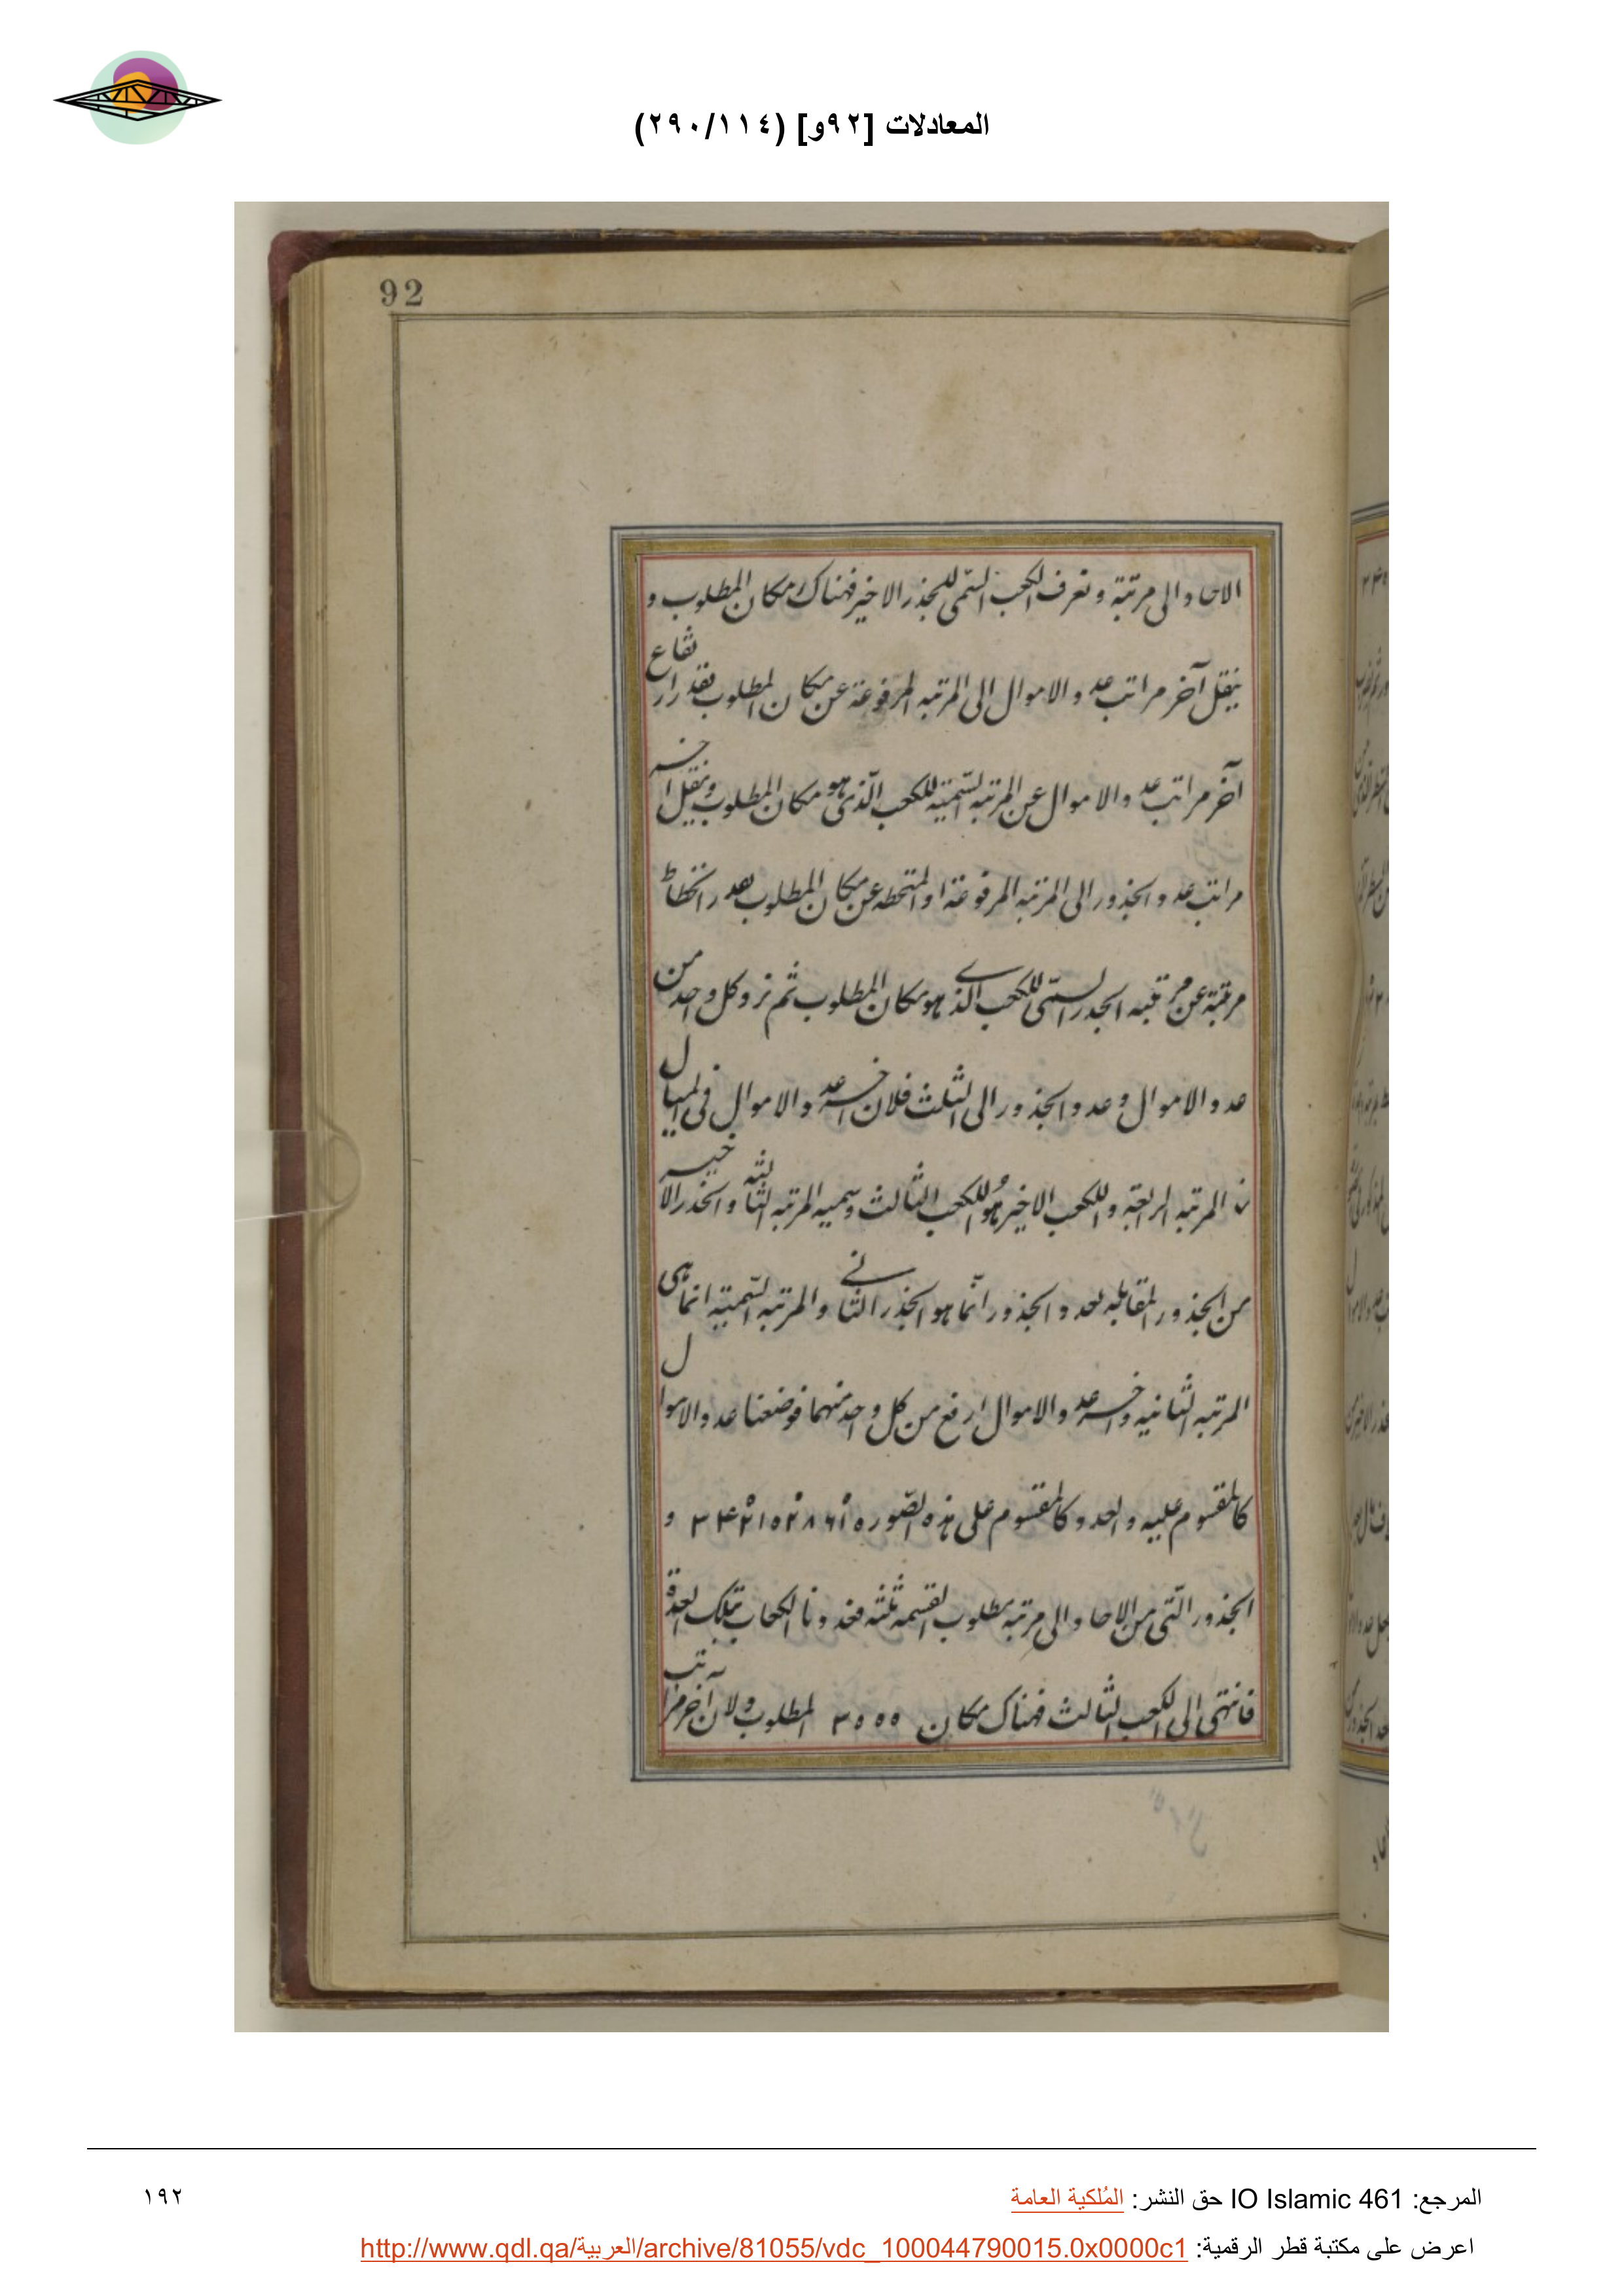 المعادلات [٩٢و] (٢٩٠/١١٤)
92
الاحاد الى مرتبة وتعرف الكعب السمّى للجذر الاخير فهناك مكان المطلوب و
ينقل آخر مراتب عدد الاموال الى المرتبه المرفوعة عن مكان المطلوب بقدر ارتفاع
آخر مراتب عدد الاموال عن المرتبه السّميّه للكعب الّذى هو مكان المطلوب وينقل آخر
مراتب عدد الجذور الى المرتبه المرفوعة او المنحطه عن مكان المطلوب بقدر انحطاط
مرتبة عن مرتبه الجذر السمّى للكعب الذى هو مكان المطلوب ثم نرد كل واحد من
عدد الاموال وعدد الجذور الى الثلث فلان آخر عدد الاموال فى المثال
فى المرتبه الرابعة والكعب الاخير هو الكعب الثالث وسميه المرتبه الثالثه والجذر الاخير
من الجذور المقابله لعدد الجذور انّما هو الجذر الثانى والمرتبه السّميّه انّما هى
المرتبه الثانيه وآخر عدد الاموال ارفع من كل واحد منهما فوضعنا عدد الاموال
كالمقسوم عليه والعدد كالمقسوم على هذه الصّوره و
الجذور التى من الاحاد الى مرتبه مطلوب القسمه ثلثه فعددنا الكعاب بتلك العدة
فانتهى الى الكعب الثالث فهناك مكان ٣٠٠٠ المطلوب ولان آخر مراتب
المرجع: IO Islamic 461 حق النشر: المُلكية العامة
١٩٢
اعرض على مكتبة قطر الرقمية: http://www.qdl.qa/العربية/archive/81055/vdc_100044790015.0x0000c1